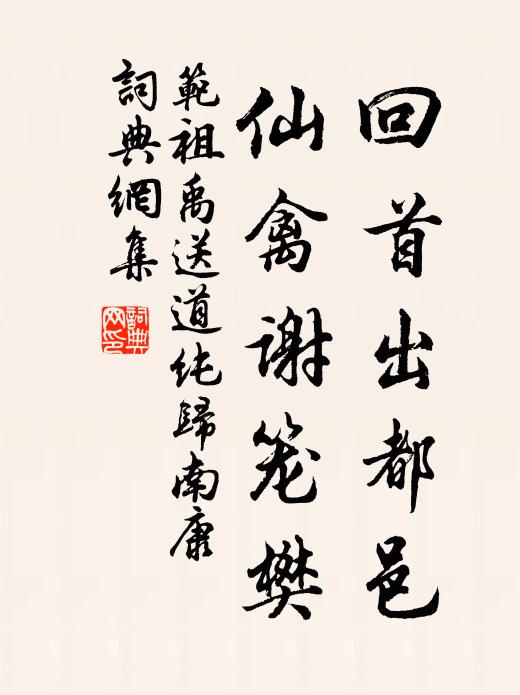 回首出都邑
仙禽谢笼樊
範祖禹送道纯歸南康
詞典網集
詞典网印